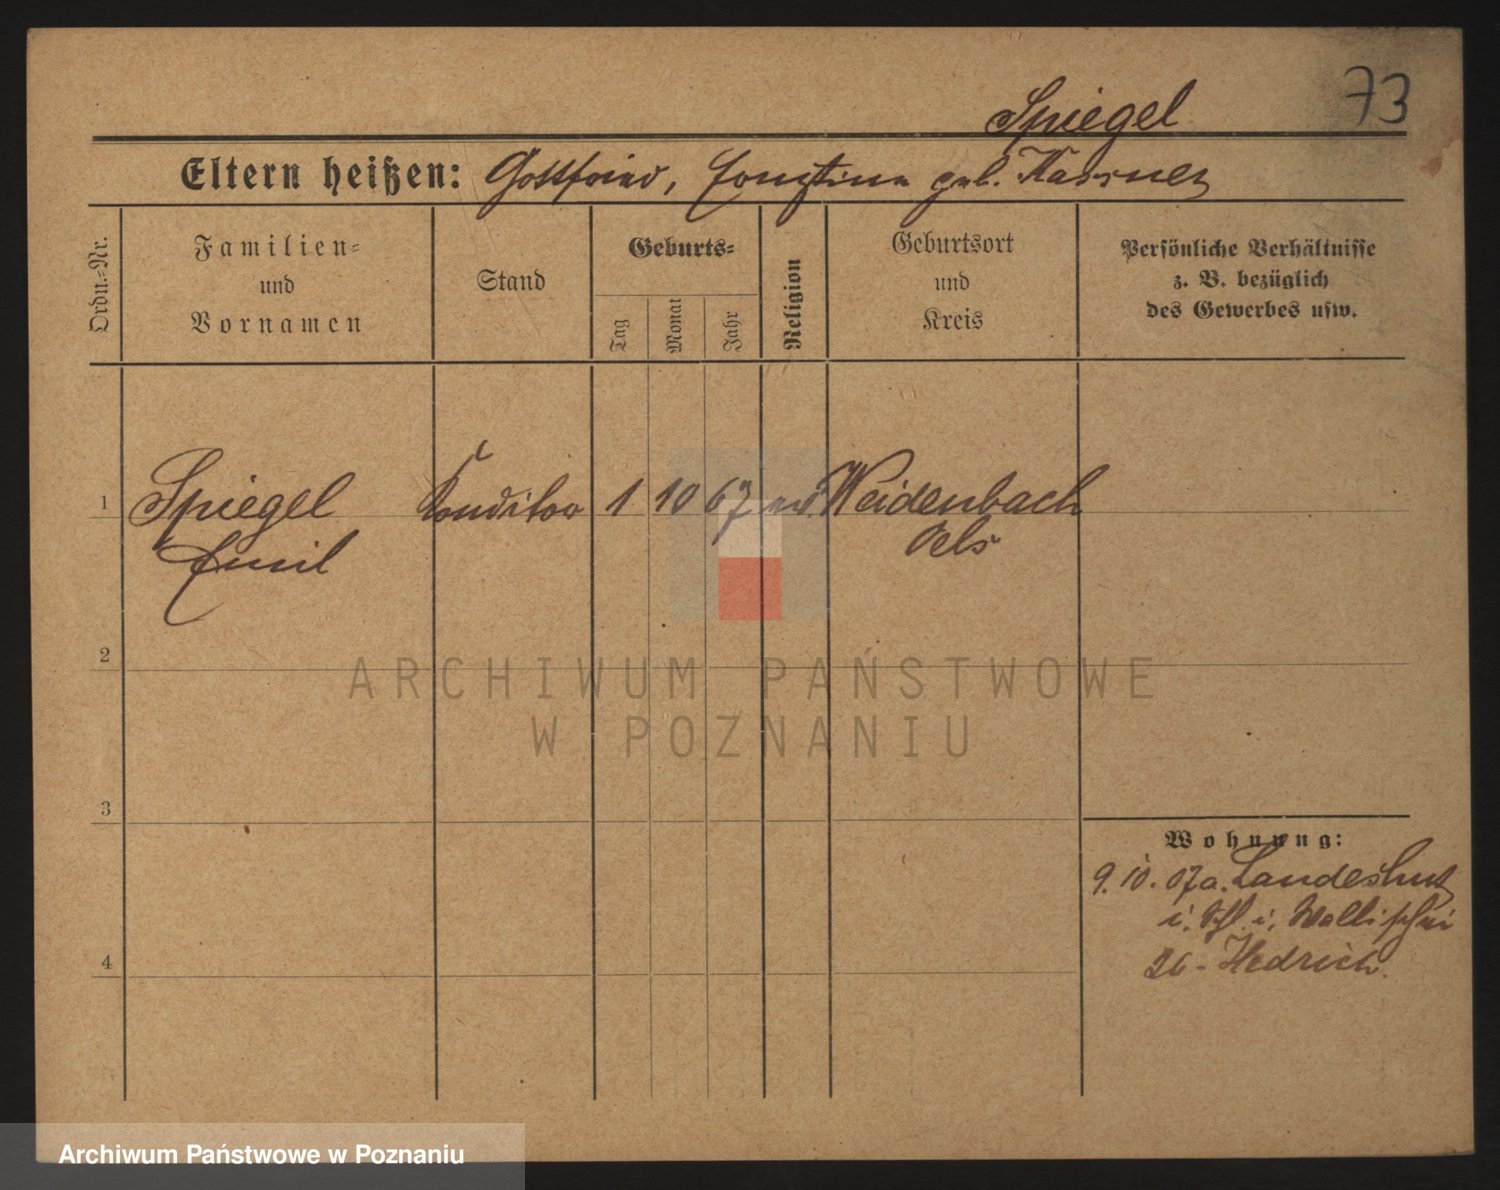 73
Spiegel
Eltern heißen: Gottfried, geb. Kassner
Ordn.-Nr.
Familien-
und
Vornamen
Stand
Geburts-
Tag
Monat
Jahr
Religion
Geburtsort
und
Kreis
Persönliche Verhältnisse
z. B. bezüglich
des Gewerbes usw.
1 Spiegel Konditor 1 10 67 ev. Weidenbach
Emil Oels
2
ARCHIWUM PAŃSTWOWE
W POZNANIU
3
Wohnung:
9. 10. 07 a. Landeshut
i. Schl. i. Wallischei
26 - Hedrich.
4
Archiwum Państwowe w Poznaniu